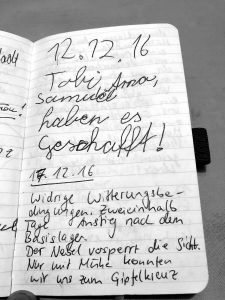 12.12.16
Tobi, Anna,
Samuel
haben es
Geschafft!
17.12.16
Widrige Witterungsbe-
dingungen. Zweieinhalb
Tage Anstieg nach dem
Basislager.
Der Nebel versperrt die Sicht.
Nur mit Mühe konnten
wir uns zum Gipfelkreuz